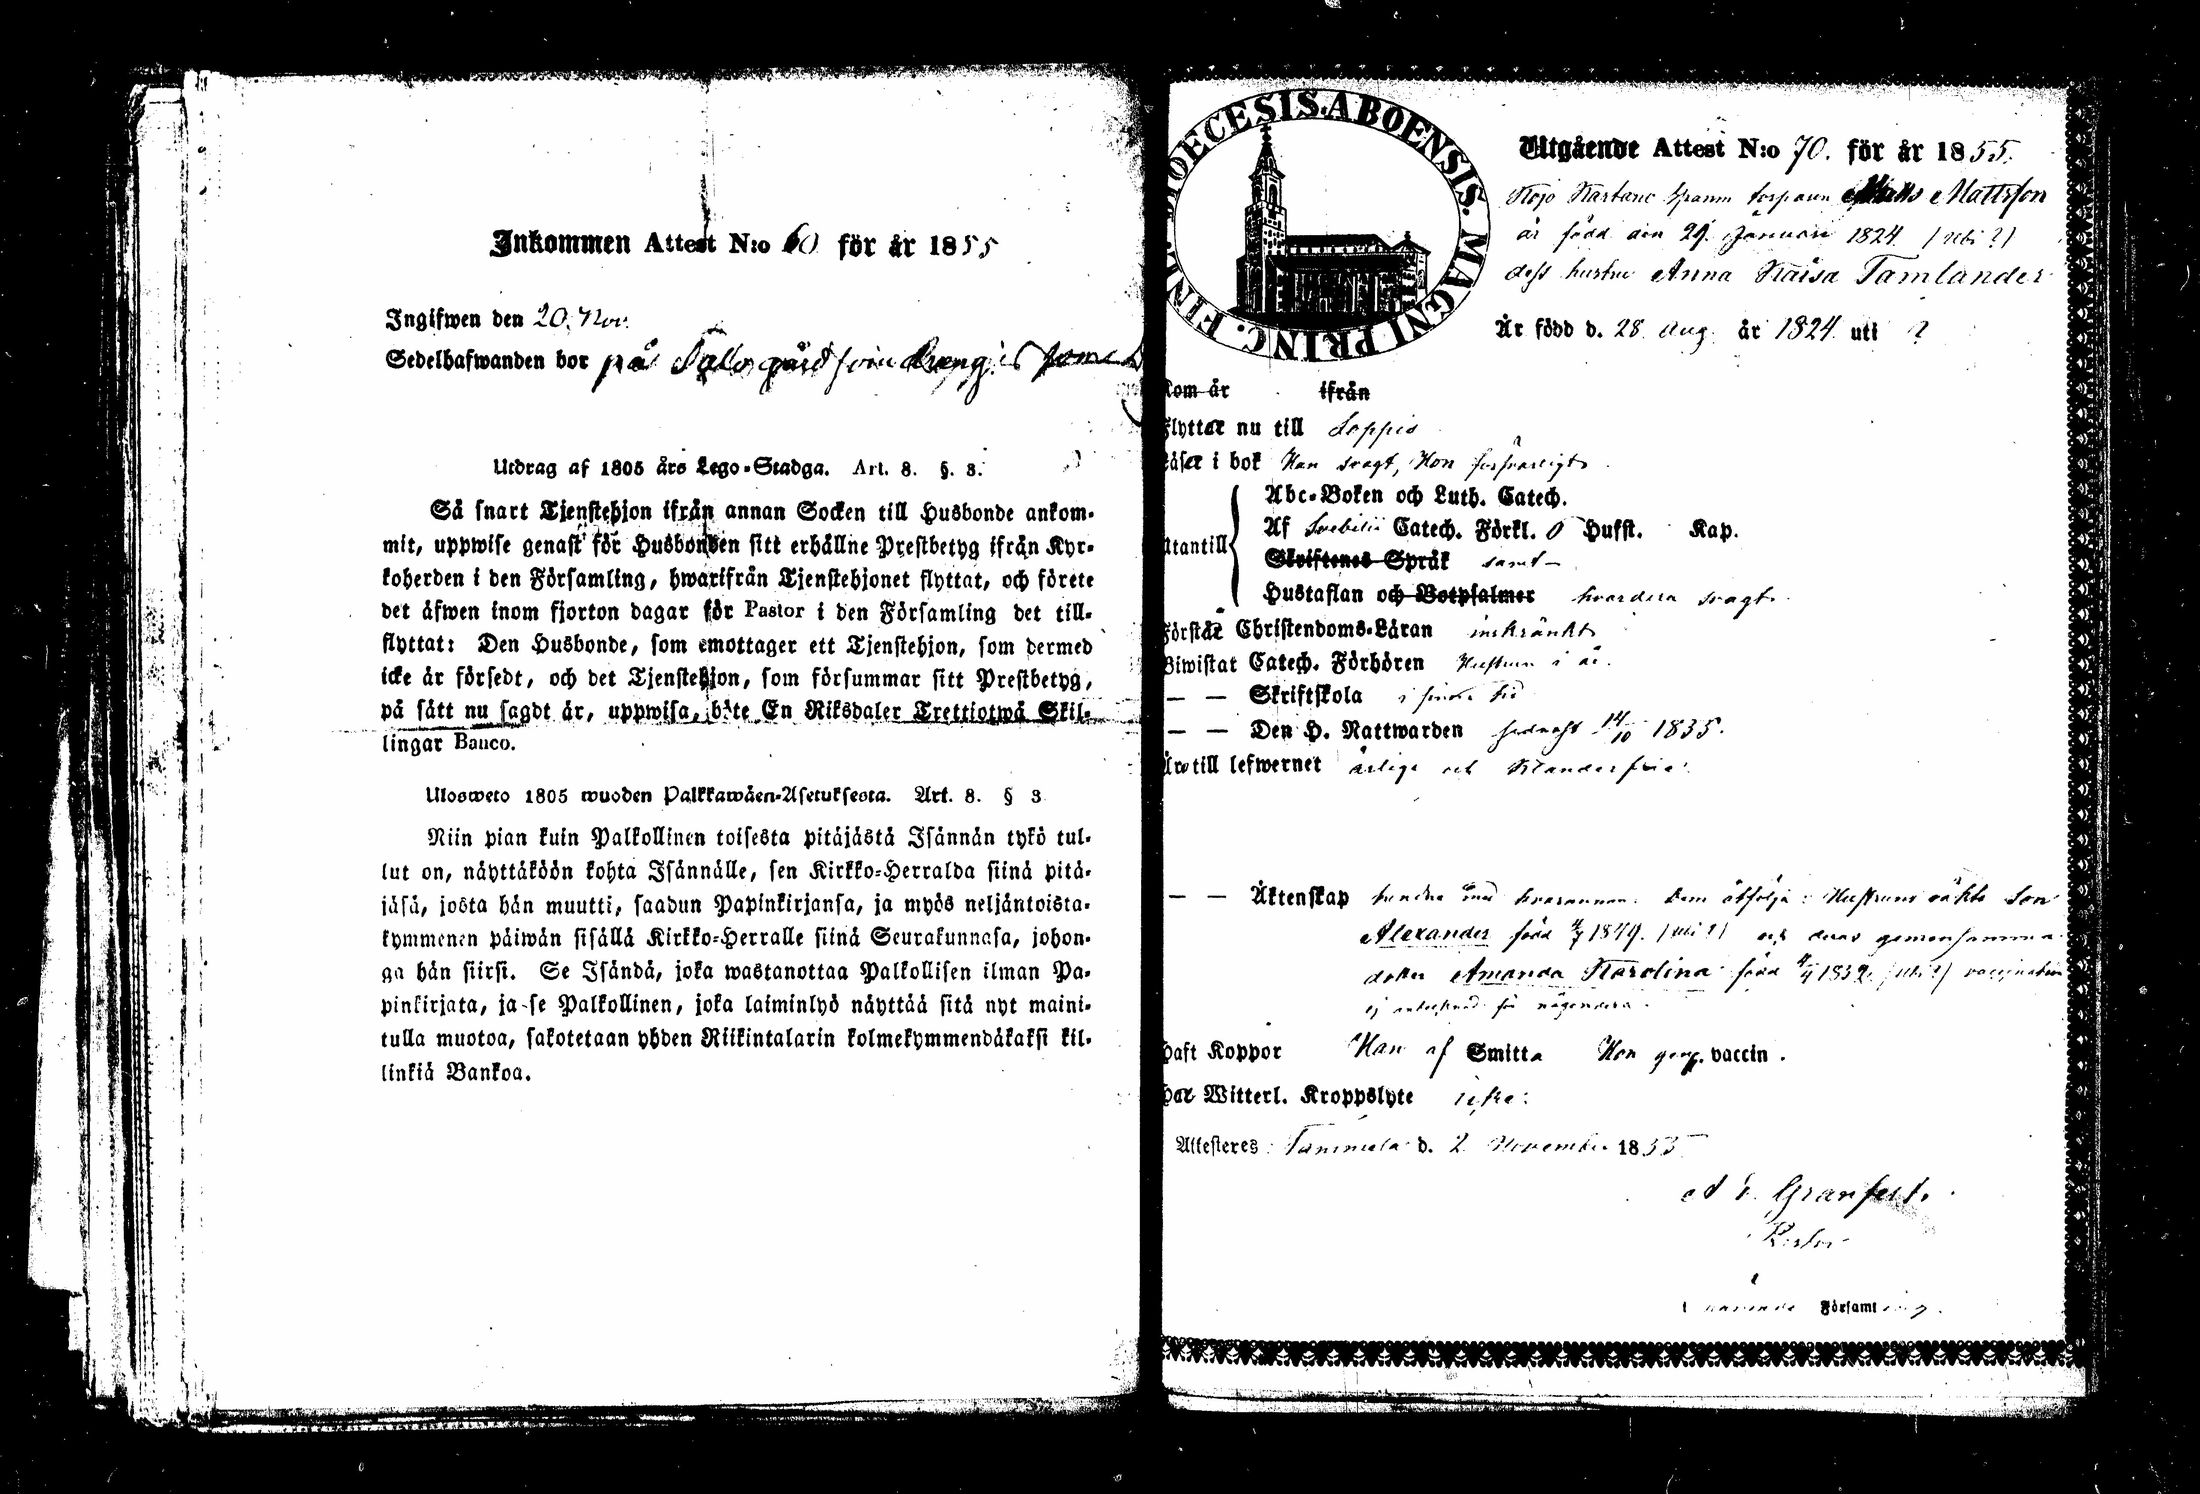 Inkommen Attest N:o 60 för år 1855
Ingifwen den 20. Nov.
Sedelhafwanden bor på gård som
Utdrag af 1805 års Lego-Stadga. Art. 8. §. 3.
Så snart Tjenstehjon ifrån annan Socken till Husbonde ankom-
mit, uppwise genast för Husbonden sitt erhållne Prestbetyg ifrån Kyr-
koherden i den Församling, hwarifrån Tjenstehjonet flyttat, och förete
det äfwen inom fjorton dagar för Pastor i den Församling det till-
flyttat: Den Husbonde, som emottager ett Tjenstehjon, som dermed
icke är försedt, och det Tjenstehjon, som försummar sitt Prestbetyg,
på sätt nu sagdt är, uppwisa, böte En Riksdaler Trettiotwå Skil-
lingar Banco.
Ulosweto 1805 wuoden Palkkawäen-Asetuksesta. Art. 8. § 3
Niin pian kuin Palkollinen toisesta pitäjästä Isännän tykö tul-
lut on, näyttäköön kohta Isännälle, sen Kirkko-Herralda siinä pitä-
jäsä, josta hän muutti, saadun Papinkirjansa, ja myös neljäntoista-
kymmenen päiwän sisällä Kirkko-Herralle siinä Seurakunnasa, johon-
ga hän siirsi. Se Isändä, joka wastanottaa Palkollisen ilman Pa-
pinkirjata, ja se Palkollinen, joka laiminlyö näyttää sitä nyt maini-
tulla muotoa, sakotetaan yhden Riikintalarin kolmekymmendäkaksi kil-
linkiä Bankoa.
DIOECESIS. ABOENSIS. MAGNI PRINC. FINL.
Utgående Attest N:o 70. för år 1855.
Mattsson
är född den 29. Januari 1824. (uti?)
dess hustru Anna Kaisa Tamlander
Är född d. 28 Aug. år 1824 uti ?
Kom år ifrån
Flyttar nu till Loppis
Läser i bok Han svagt, Hon försvarligt.
Utantill
Abc-Boken och Luth. Catech.
Af Svebilii Catech. Förkl. 0 Hufst. Kap.
Skriftenes Språk samt
Hustaflan och Botpsalmer hvardera svagt.
Förstår Christendoms-Läran inskränkt
Biwistat Catech. Förhören Hustrun i år.
— — Skriftskola i
— — Den H. Nattwarden sednast 14/10 1835.
Äro till lefwernet ärliga och klanderfria.
— — Äktenskap med hvarannan. Dem åtfölja: Hustruns oäkta Son
Alexander född 1849. (uti?) och deras gemensamma
dotter Amanda Karolina född (uti?) vaccination
ej antecknad för någondera.
Haft Koppor Han af Smitta Hon gen. vaccin.
Har Witterl. Kroppslyte icke.
Attesteres Tammela d. 2 November 1855
A. E. Granfelt.
Pastor
i nämnde Församling.